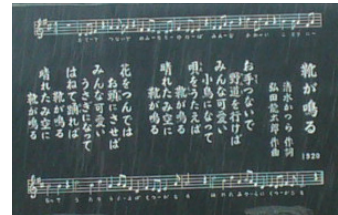 靴が鳴る
清水かつら 作詞
弘田龍太郎 作曲
1920
お手つないで
野道を行けば
みんな可愛い
小鳥になって
唄をうたえば
靴が鳴る
晴れたみ空に
靴が鳴る
花をつんでは
お頭にさせば
みんな可愛い
うさぎになって
はねて踊れば
靴が鳴る
晴れたみ空に
靴が鳴る